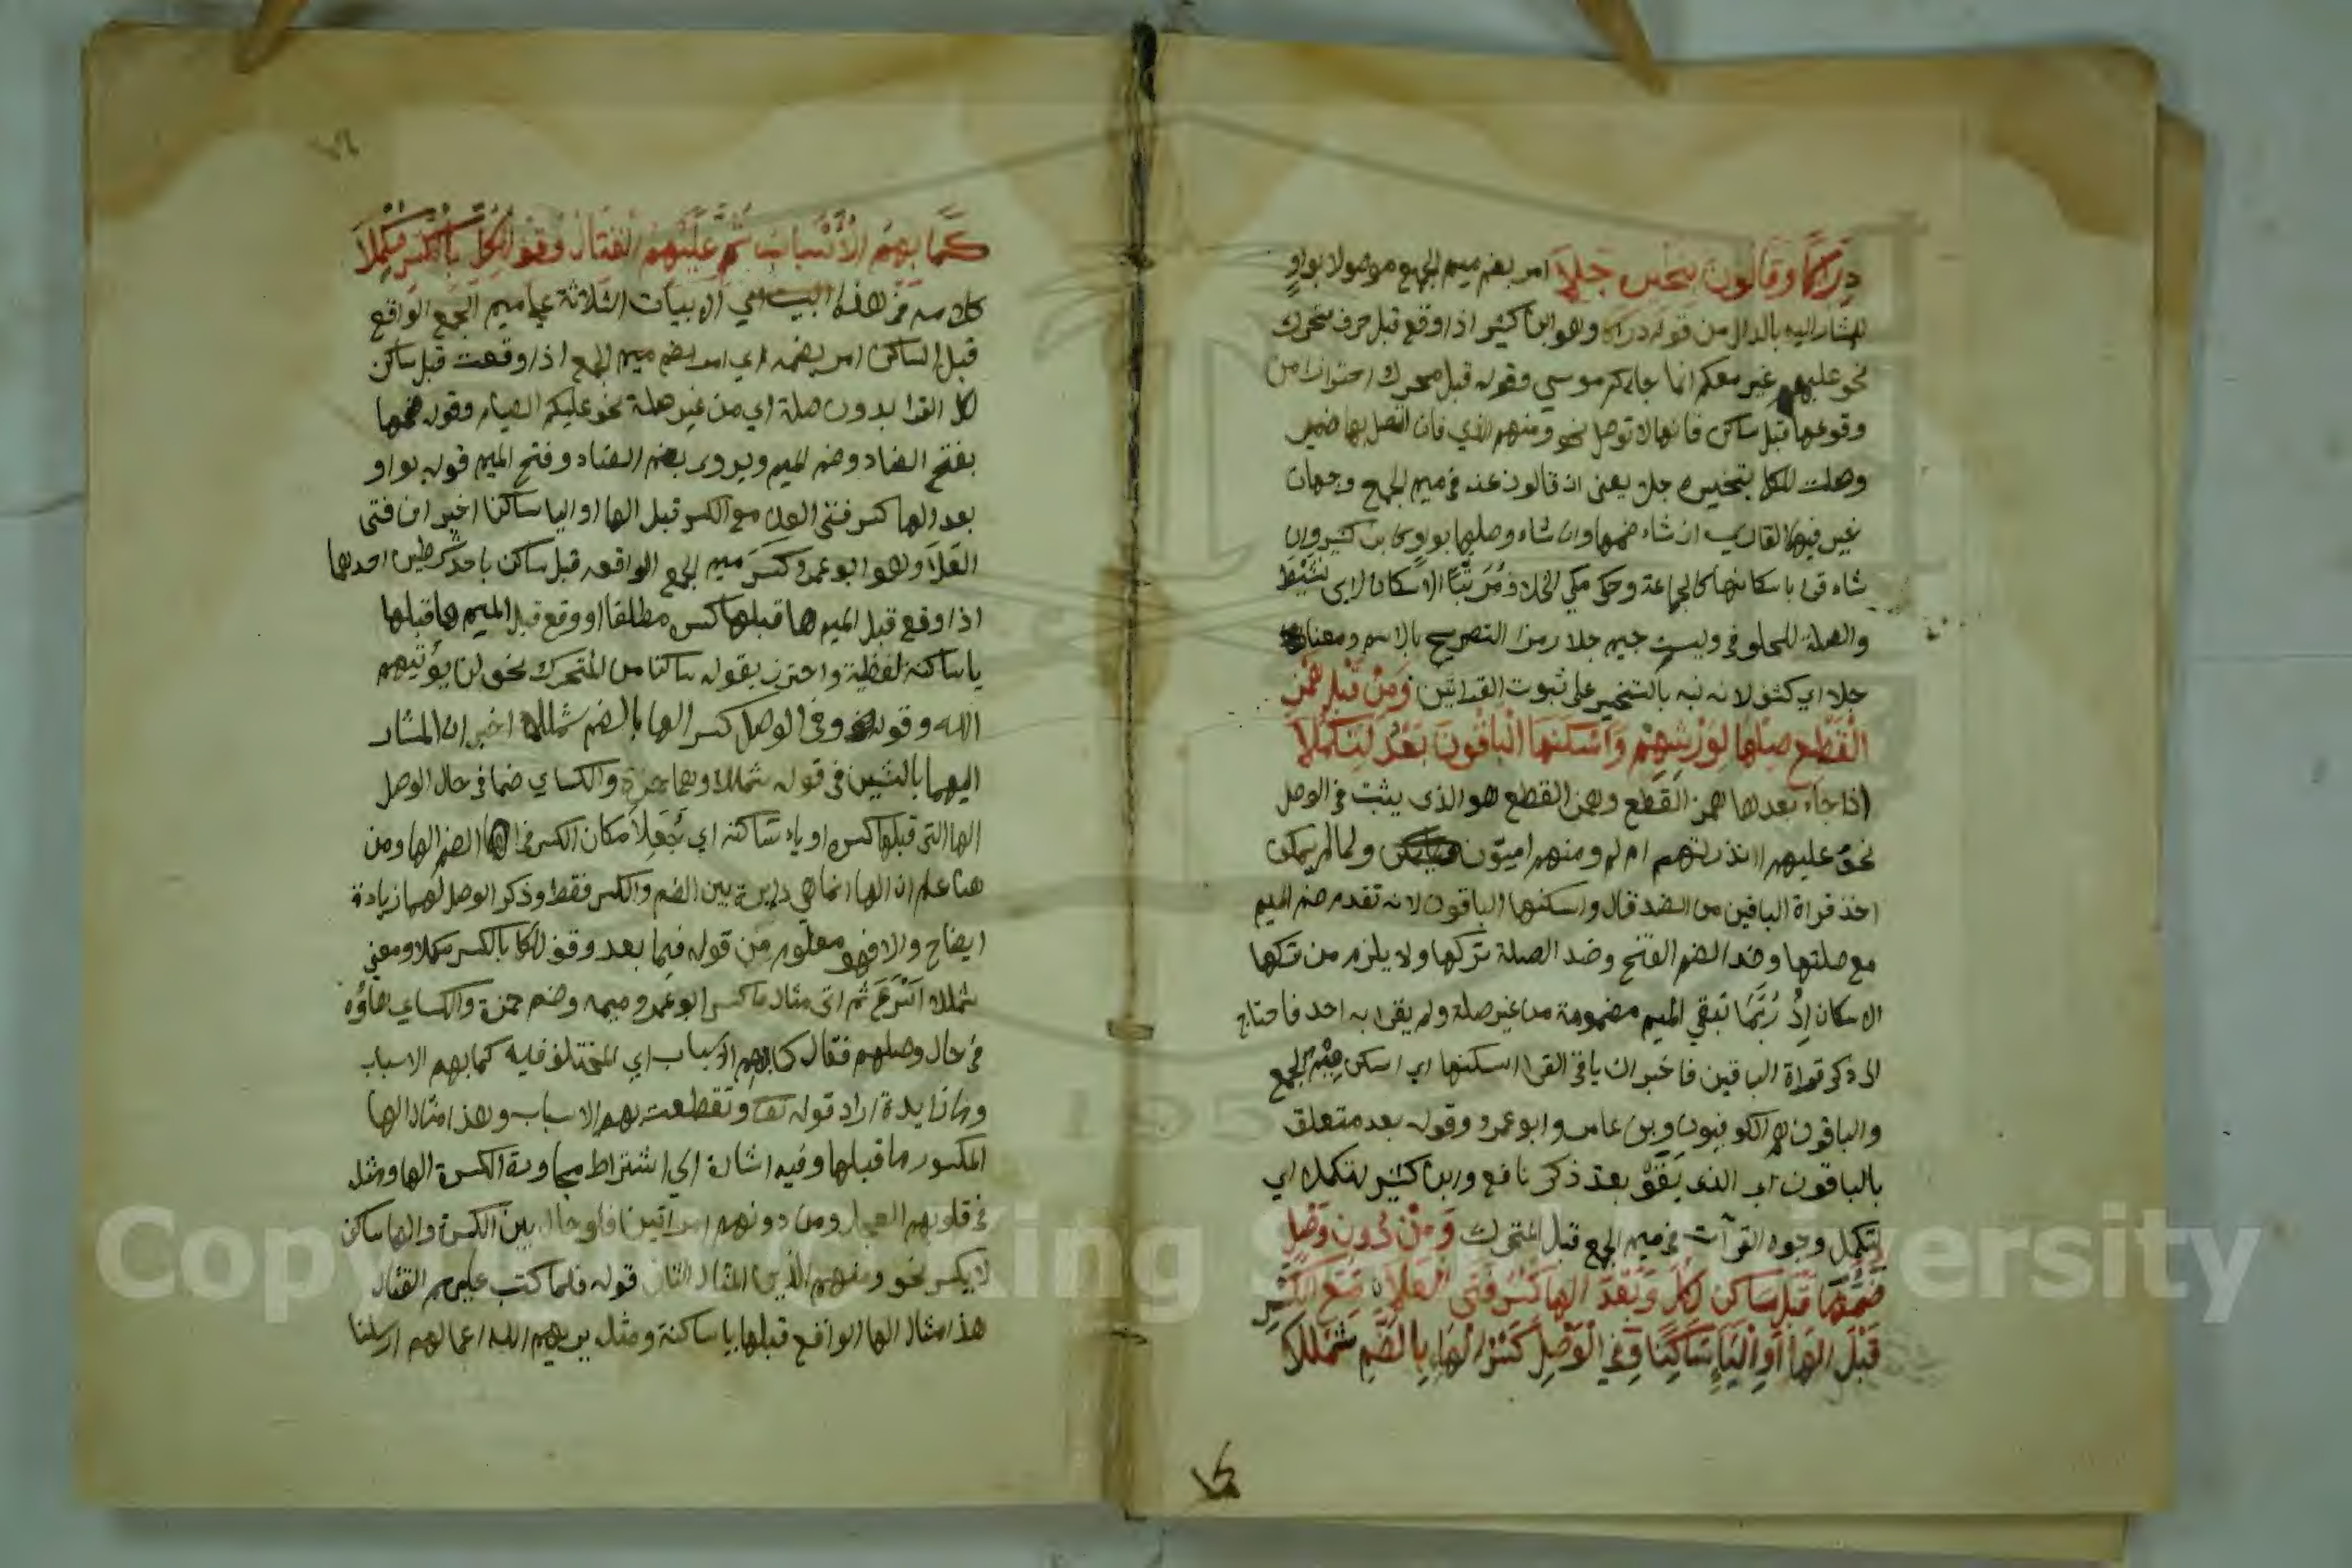 دِرَاكًا وقالون بتخييره جلا امر بضم ميم الجمع موصولا بواو
للمشار اليه بالدال من قوله دراكا وهو ابن كثير اذا وقع قبل حرف متحرك
نحو عليهم غير معكم انما جاءكم موسي وقوله قبل محرك احترازا من
وقوعها قبل ساكن فانها لا توصل نحو ومنهم الذي فان اتصل بها ضمير
وصلت للكل بتخييره جلا يعني ان قالون عنه في ميم الجمع وجهان
غير فيهما القاري ان شاء ضمها وان شاء وصلها بواو كابن كثير وان
شاء قرا باسكانها كالجماعة وحكى مكي الخلاف مُرَتَّبًا الاسكان لابي نَشِيْط
والصلة للحلواني وليست جيم جلا رمزا التصريح بالاسم ومعنى
جلا اي كشف لانه نبه بالتخيير على ثبوت القراتين وَمِنْ قَبْلِ هَمْزِ
الْقَطْعِ صِلْهَا لِوَرْشِهِمْ وَأَسْكَنَهَا الْبَاقُونَ بَعْدُ لِتَكْمُلَا
اذا جاء بعدها همز القطع وهمز القطع هو الذي يثبت في الوصل
نحو عليهم اانذرتهم ام لم ومنهم اميون ولما لم يمكن
اخذ قراة الباقين من الضد قال واسكنها الباقون لانه تقدم ضم الميم
مع صلتها وضد الضم الفتح وضد الصلة تركها ولا يلزم من تركها
الاسكان اِذْ رُبَّمَا تبقي الميم مضمومة من غير صلة ولم يقرا به احد فاحتاج
الى ذكر قراة الباقين فاخبر ان باقي القرا اسكنها اي اسكن ميم الجمع
والباقون هم الكوفيون وبن عامر وابو عمرو وقوله بعد متعلق
بالباقون اي الذي بَقَوْ بعد ذكر نافع وابن كثير لتكملا اي
لِتكمل وجوه القرآت في ميم الجمع قبل المتحرك وَمِنْ دُونِ وَصْلٍ
ضُمَّهَا قَبْلَ سَاكِنٍ لِكُلٍّ وَبَعْدَ الهَا كَسْرُ فَتَى الْعَلَا مَعَ الْكَسْرِ
قَبْلَ الهَا أَوِ الْيَاءِ سَاكِنًا وَفِي الْوَصْلِ كَسْرُ الْهَاءِ بِالضَّمِّ شَمْلَلَا
كَمَا بِهِمُ الْأَسْبَابُ ثُمَّ عَلَيْهِمُ الْقِتَالُ وَقِفْ لِلْكُلِّ بِالْكَسْرِ مُكْمِلَا
كلامه في هذا البيت اي الابيات الثلاثة على ميم الجمع الواقع
قبل الساكن امر بضمه اي امر بضم ميم الجمع اذا وقعت قبل ساكن
لكل القرا بدون صلة اي من غير صلة نحو عليكم الصيام وقوله ضمها
بفتح الضاد وضم الميم ويروى بضم الضاد وفتح الميم قوله بواو
بعد الها كسر فتى العلا مع الكسر قبل الها او اليا ساكنا اخبر ان فتى
العلا وهو ابو عمرو كَسَرَ ميم الجمع الواقعه قبل ساكن باحد شرطين احدهما
اذا وقع قبل الميم ها قبلها كسر مطلقا او وقع قبل الميم ها قبلها
يا ساكنة لفظية واحترز بقوله ساكنا من المتحرك نحو لن يؤتيهم
الله وقوله وفي الوصل كسر الها بالضم شمللا اخبر ان المشار
اليهما بالشين في قوله شمللا وهما حمزة والكساي ضما في حال الوصل
الها التي قبلها كسر او ياء ساكنه اي جعلا مكان الكسر في الها الضم الها ومن
هنا علم ان الها انما هي دايرة بين الضم والكسر فقط وذكر الوصل لهما زيادة
ايضاح والا فهو معلوم من قوله فيما بعد وقف للكل بالكسر مكملا ومعني
شمللا اَسْرَعَ ثم اتى مثال ما كسر ابو عمرو ميمه وضم حمزة والكساي هاؤه
في حال وصلهم فقال كما بهم الاسباب اي المختلف فيه كما بهم الاسباب
وما زايدة اراد قوله تعا وتقطعت بهم الاسباب وهذا مثال الها
المكسور ما قبلها وفيه اشارة الى اشتراط مجاورة الكسرة الها ومثله
في قلوبهم العجل ومن دونهم امراتين فلو حال بين الكسرة والها ساكن
لا يكسر نحو ومنهم الذين المثال الثان قوله فلما كتب عليهم القتال
هذا مثال الها الواقع قبلها يا ساكنة ومثله يريهم الله اعمالهم ارسلنا
Copyright © King Saud University
195